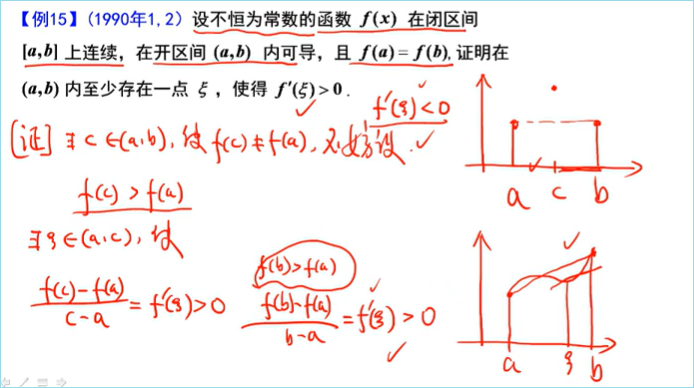 【例15】(1990年1,2) 设不恒为常数的函数 f(x) 在闭区间
[a,b] 上连续，在开区间 (a,b) 内可导，且 f(a)=f(b), 证明在
(a,b) 内至少存在一点 ξ，使得 f′(ξ)>0.
f′(ξ)<0
[证] ∃ c∈(a,b), 使 f(c)≠f(a), 不妨设
f(c)>f(a)
∃ξ∈(a,c), 使
f(b)>f(a)
(f(c)-f(a))/(c-a) = f′(ξ)>0
(f(b)-f(a))/(b-a) = f′(ξ)>0
a c b
a ξ b